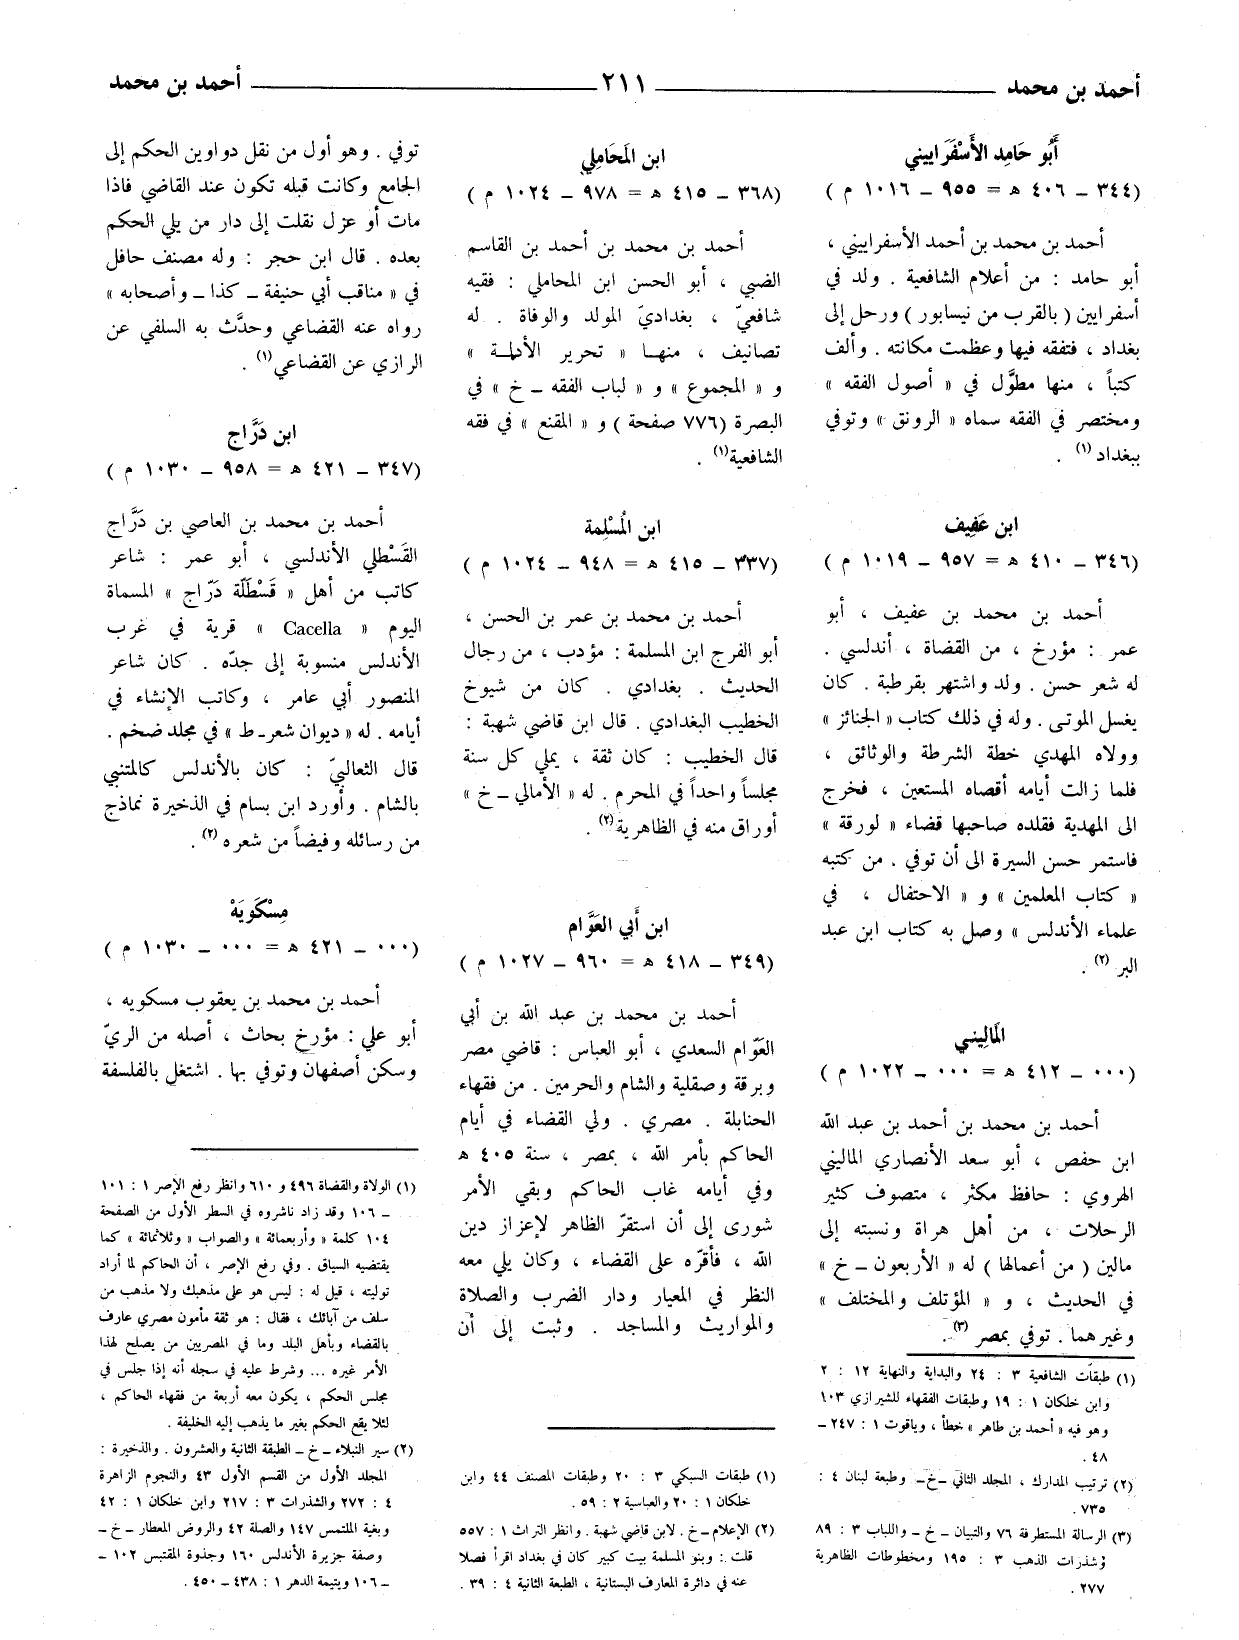 أحمد بن محمد ٢١١ أحمد بن محمد
أَبُو حَامِد الأَسْفَرَاييني
(٣٤٤ ــ ٤٠٦ ه = ٩٥٥ ــ ١٠١٦ م )
أحمد بن محمد بن أحمد الأسفراييني ،
أبو حامد : من أعلام الشافعية . ولد في
أسفرايين ( بالقرب من نيسابور ) ورحل إلى
بغداد ، فتفقه فيها وعظمت مكانته . وألف
كتباً ، منها مطوَّل في « أصول الفقه »
ومختصر في الفقه سماه « الرونق » وتوفي
ببغداد (١) .
ابن عَفِيف
(٣٤٦ ــ ٤١٠ ه = ٩٥٧ ــ ١٠١٩ م )
أحمد بن محمد بن عفيف ، أبو
عمر : مؤرخ ، من القضاة ، أندلسي .
له شعر حسن . ولد واشتهر بقرطبة . كان
يغسل الموتى . وله في ذلك كتاب « الجنائز »
وولاه المهدي خطة الشرطة والوثائق ،
فلما زالت أيامه أقصاه المستعين ، فخرج
الى المهدية فقلده صاحبها قضاء « لورقة »
فاستمر حسن السيرة الى أن توفي . من كتبه
« كتاب المعلمين » و « الاحتفال ، في
علماء الأندلس » وصل به كتاب ابن عبد
البر (٢) .
المَالِيني
(٠٠٠ ــ ٤١٢ ه = ٠٠٠ ــ ١٠٢٢ م )
أحمد بن محمد بن أحمد بن عبد الله
ابن حفص ، أبو سعد الأنصاري الماليني
الهروي : حافظ مكثر ، متصوف كثير
الرحلات ، من أهل هراة ونسبته إلى
مالين ( من أعمالها ) له « الأربعون ــ خ »
في الحديث ، و « المؤتلف والمختلف »
وغيرهما . توفي بمصر (٣) .
(١) طبقات الشافعية ٣ : ٢٤ والبداية والنهاية ١٢ : ٢
وابن خلكان ١ : ١٩ وطبقات الفقهاء للشيرازي ١٠٣
وهو فيه « أحمد بن طاهر » خطأ ، وياقوت ١ : ٢٤٧ ــ
٤٨ .
(٢) ترتيب المدارك ، المجلد الثاني ــ خ ــ وطبعة لبنان ٤ :
٧٣٥ .
(٣) الرسالة المستطرفة ٧٦ والتبيان ــ خ ــ واللباب ٣ : ٨٩
وشذرات الذهب ٣ : ١٩٥ ومخطوطات الظاهرية
٢٧٧ .
ابن المَحَامِلي
(٣٦٨ ــ ٤١٥ ه = ٩٧٨ ــ ١٠٢٤ م )
أحمد بن محمد بن أحمد بن القاسم
الضبي ، أبو الحسن ابن المحاملي : فقيه
شافعيّ ، بغداديّ المولد والوفاة . له
تصانيف ، منهـا « تحرير الأدلة »
و « المجموع » و « لباب الفقه ــ خ » في
البصرة (٧٧٦ صفحة ) و « المقنع » في فقه
الشافعية (١) .
ابن المُسْلِمة
(٣٣٧ ــ ٤١٥ ه = ٩٤٨ ــ ١٠٢٤ م )
أحمد بن محمد بن عمر بن الحسن ،
أبو الفرج ابن المسلمة : مؤدب ، من رجال
الحديث . بغدادي . كان من شيوخ
الخطيب البغدادي . قال ابن قاضي شهبة :
قال الخطيب : كان ثقة ، يملي كل سنة
مجلساً واحداً في المحرم . له « الأمالي ــ خ »
أوراق منه في الظاهرية (٢) .
ابن أَبي العَوَّام
(٣٤٩ ــ ٤١٨ ه = ٩٦٠ ــ ١٠٢٧ م )
أحمد بن محمد بن عبد الله بن أبي
العَوّام السعدي ، أبو العباس : قاضي مصر
وبرقة وصقلية والشام والحرمين . من فقهاء
الحنابلة . مصري . ولي القضاء في أيام
الحاكم بأمر الله ، بمصر ، سنة ٤٠٥ ه
وفي أيامه غاب الحاكم وبقي الأمر
شورى إلى أن استقرّ الظاهر لإعزاز دين
الله ، فأقرّه على القضاء ، وكان يلي معه
النظر في المعيار ودار الضرب والصلاة
والمواريث والمساجد . وثبت إلى أن
(١) طبقات السبكي ٣ : ٢٠ وطبقات المصنف ٤٤ وابن
خلكان ١ : ٢٠ والعباسية ٢ : ٥٩ .
(٢) الإعلام ــ خ . لابن قاضي شهبة . وانظر التراث ١ : ٥٥٧
قلت : وبنو المسلمة بيت كبير كان في بغداد اقرأ فصلا
عنه في دائرة المعارف البستانية ، الطبعة الثانية ٤ : ٣٩ .
توفي . وهو أول من نقل دواوين الحكم إلى
الجامع وكانت قبله تكون عند القاضي فاذا
مات أو عزل نقلت إلى دار من يلي الحكم
بعده . قال ابن حجر : وله مصنف حافل
في « مناقب أبي حنيفة ــ كذا ــ وأصحابه »
رواه عنه القضاعي وحدَّث به السلفي عن
الرازي عن القضاعي (١) .
ابن دَرَّاج
(٣٤٧ ــ ٤٢١ ه = ٩٥٨ ــ ١٠٣٠ م )
أحمد بن محمد بن العاصي بن دَرَّاج
القَسْطلي الأندلسي ، أبو عمر : شاعر
كاتب من أهل « قَسْطَلّة دَرّاج » المسماة
اليوم « Cacella » قرية في غرب
الأندلس منسوبة إلى جدّه . كان شاعر
المنصور أبي عامر ، وكاتب الإنشاء في
أيامه . له « ديوان شعر ــ ط » في مجلد ضخم .
قال الثعالبيّ : كان بالأندلس كالمتنبي
بالشام . وأورد ابن بسام في الذخيرة نماذج
من رسائله وفيضاً من شعره (٢) .
مِسْكَوَيَهْ
(٠٠٠ ــ ٤٢١ ه = ٠٠٠ ــ ١٠٣٠ م )
أحمد بن محمد بن يعقوب مسكويه ،
أبو علي : مؤرخ بحاث ، أصله من الريّ
وسكن أصفهان وتوفي بها . اشتغل بالفلسفة
(١) الولاة والقضاة ٤٩٦ و ٦١٠ وانظر رفع الإصر ١ : ١٠١
ــ ١٠٦ وقد زاد ناشروه في السطر الأول من الصفحة
١٠٤ كلمة « وأربعمائة » والصواب « وثلاثمائة » كما
يقتضيه السياق . وفي رفع الإصر ، أن الحاكم لما أراد
توليته ، قيل له : ليس هو على مذهبك ولا مذهب من
سلف من آبائك ، فقال : هو ثقة مأمون مصري عارف
بالقضاء وبأهل البلد وما في المصريين من يصلح لهذا
الأمر غيره ... وشرط عليه في سجله أنه إذا جلس في
مجلس الحكم ، يكون معه أربعة من فقهاء الحاكم ،
لئلا يقع الحكم بغير ما يذهب إليه الخليفة .
(٢) سير النبلاء ــ خ ــ الطبقة الثانية والعشرون . والذخيرة :
المجلد الأول من القسم الأول ٤٣ والنجوم الزاهرة
٤ : ٢٧٢ والشذرات ٣ : ٢١٧ وابن خلكان ١ : ٤٢
وبغية الملتمس ١٤٧ والصلة ٤٢ والروض المعطار ــ خ ــ
وصفة جزيرة الأندلس ١٦٠ وجذوة المقتبس ١٠٢ ــ
ــ ١٠٦ ويتيمة الدهر ١ : ٤٣٨ ــ ٤٥٠ .